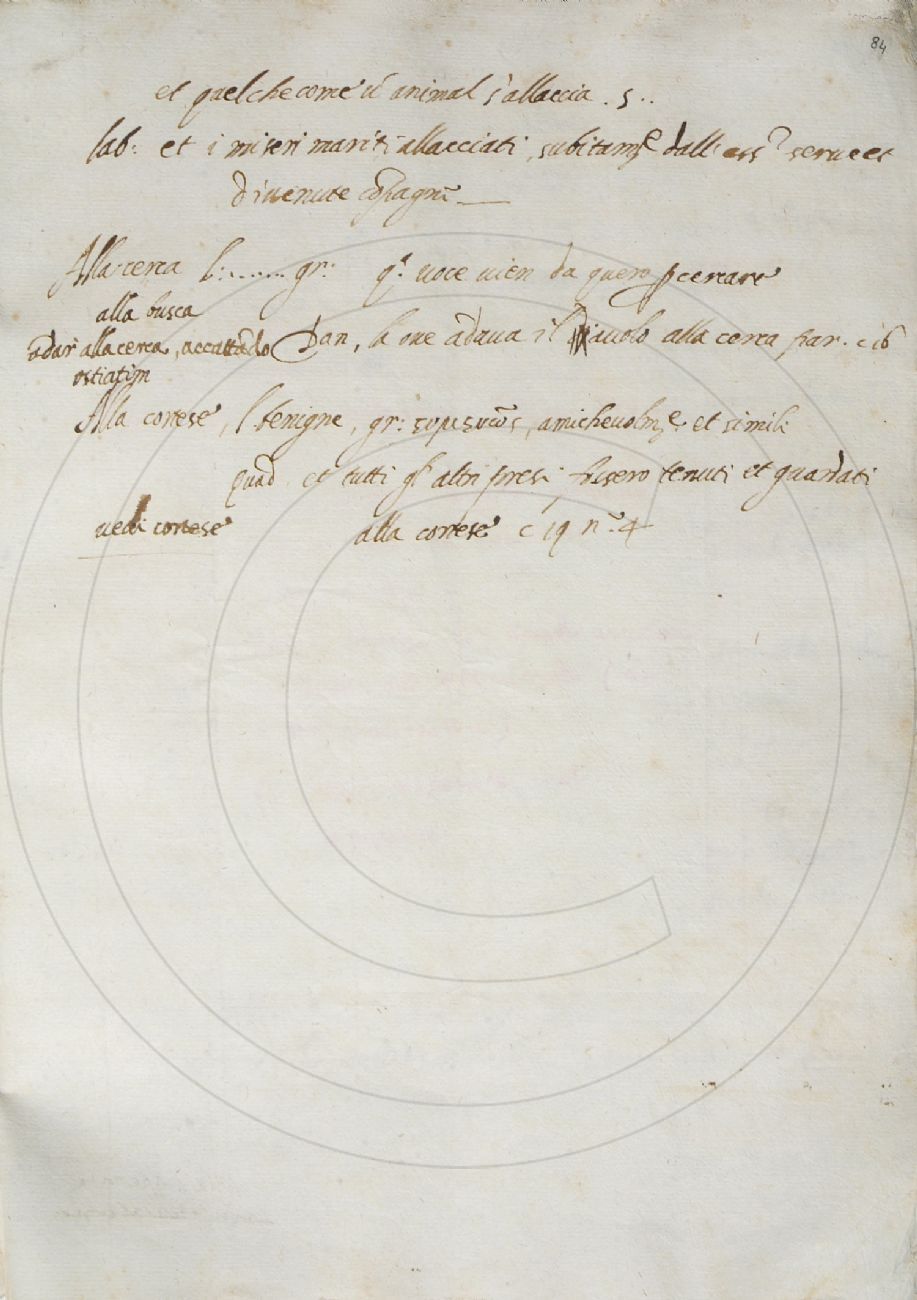 84
et quel che come ũ animal s'allaccia . s . .
lab: et i miseri mariti allacciati, subitam.e dall' ess. serue et
diuenute cõpagni
Alla cerca l: ....... gr: q.a uoce uien da quero p cercare
alla busca
ãdar alla cerca, accattãdo Dan, là oue ãdaua il Diauolo alla cerca par. c 16
ostiatim
Alla cortese, l benigne, gr: amicheuolm.e et simili
quad. et tutti gl' altri presi fusero tenuti et guardati
uedi cortese alla cortese c 19 n. 4